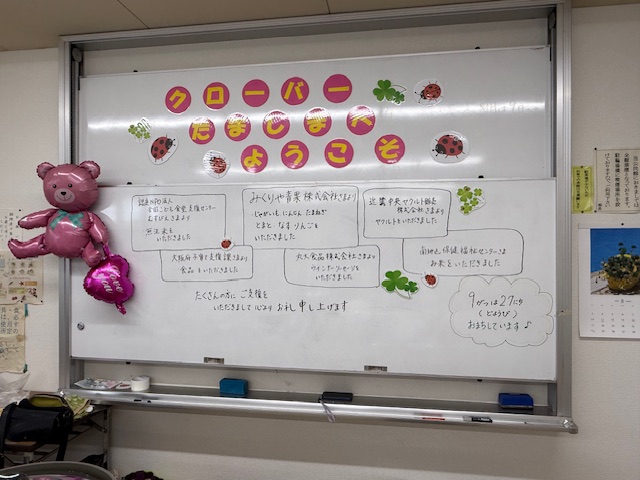 クローバー
たましまへ
ようこそ
認定NPO法人
全国こども食堂支援センター
むすびえさまより
無洗米を
いただきました
みくりや青果株式会社さまより
じゃがいも にんじん たまねぎ
とまと なす りんごを
いただきました
近畿中央ヤクルト販売
株式会社さまより
ヤクルトをいただきました
大阪府子育て支援課さまより
食品をいただきました
丸大食品株式会社さまより
ウインナーソーセージを
いただきました
南地区保健福祉センターさま
お米をいただきました
たくさんの方に ご支援を
いただきまして 心より お礼申し上げます
9がつは27にち
(どようび)
おまちしています♪